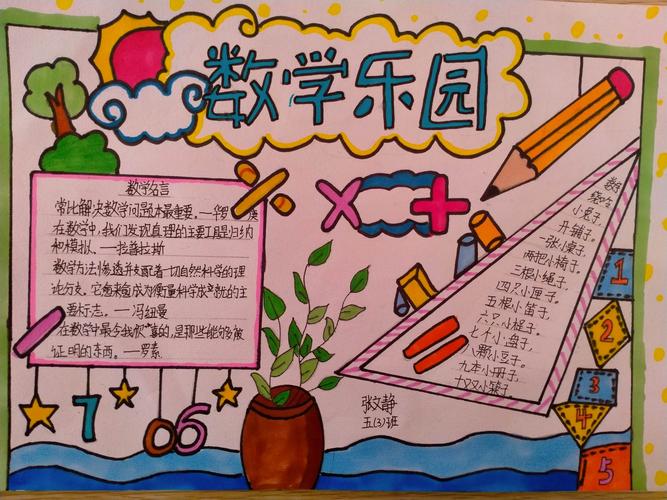 数学乐园
数学名言
常比解决数学问题本最重要。—华罗庚
在数学中，我们发现真理的主要工具是归纳
和模拟。—拉普拉斯
数学方法惨透并支配着一切自然科学的理
论分支。它愈来愈成为衡量科学成就的主
要标志。—冯纽曼
在数学中最令我欣喜的，是那些能够被
证明的东西。—罗素
7 0 6
÷
× +
数学
袋哈
小兔子，
开铺子。
一张小桌子，
两把小椅子，
三根小绳子，
四只小匣子，
五根小笛子，
六只小棍子，
七个小盘子，
八颗小豆子，
九本小册子，
十双小筷子。
张文静
五(3)班
1
2
3
4
5